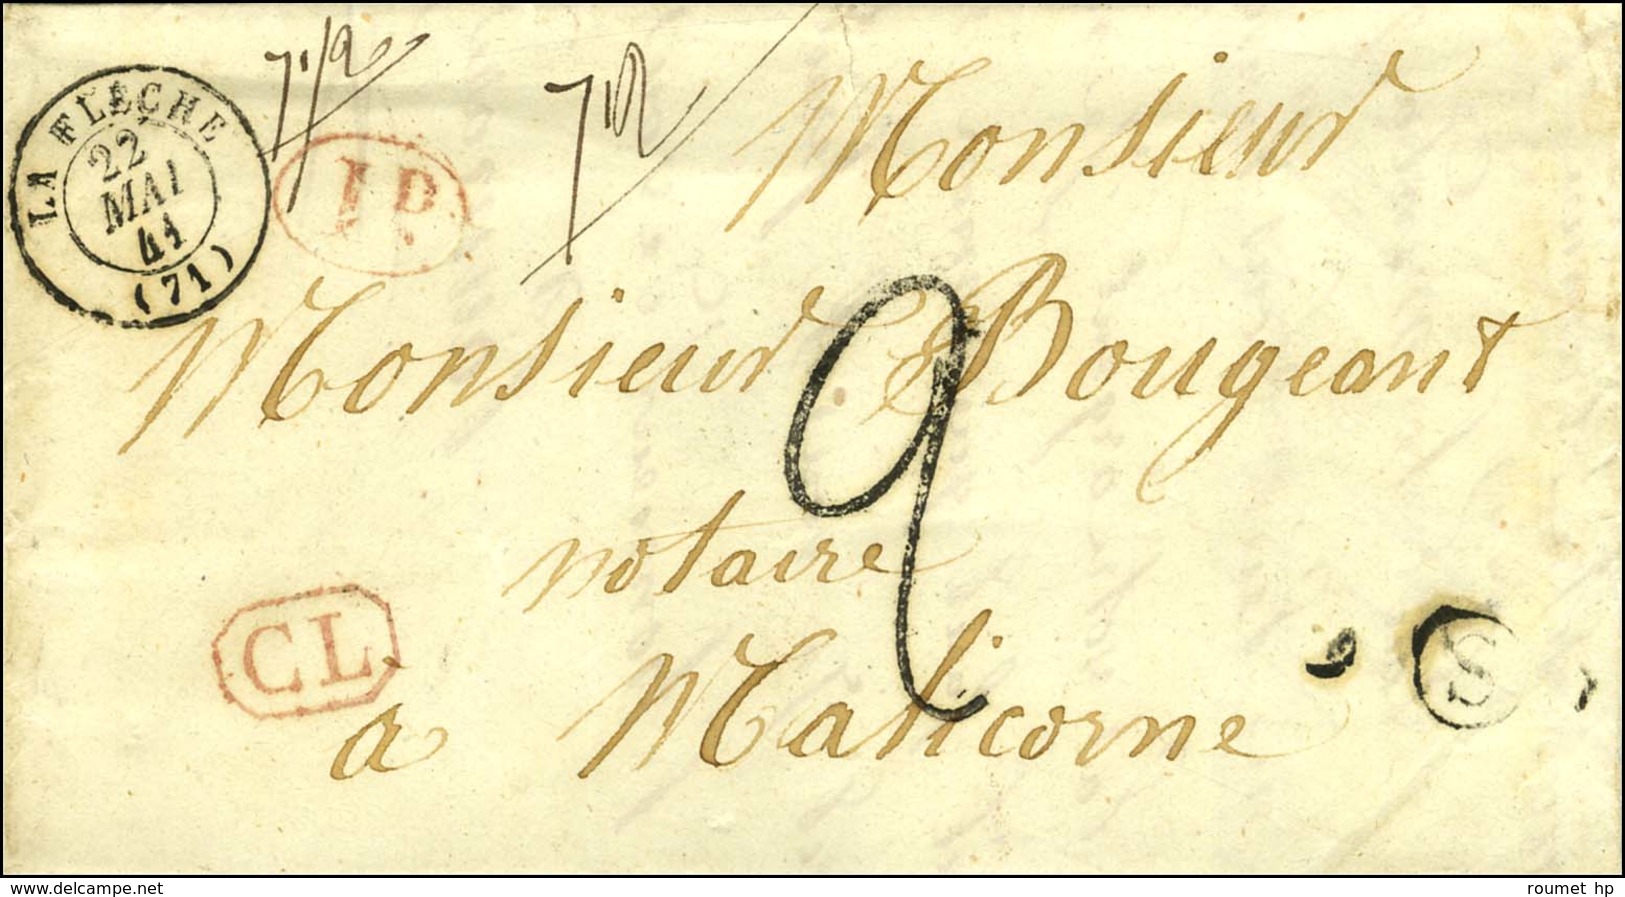 LA FLÈCHE
22
MAI
41
(71)
1 D.
Monsieur
Monsieur Bougeant
2
notaire
CL
S
à Malicorne
www.delcampe.net
roumet hp